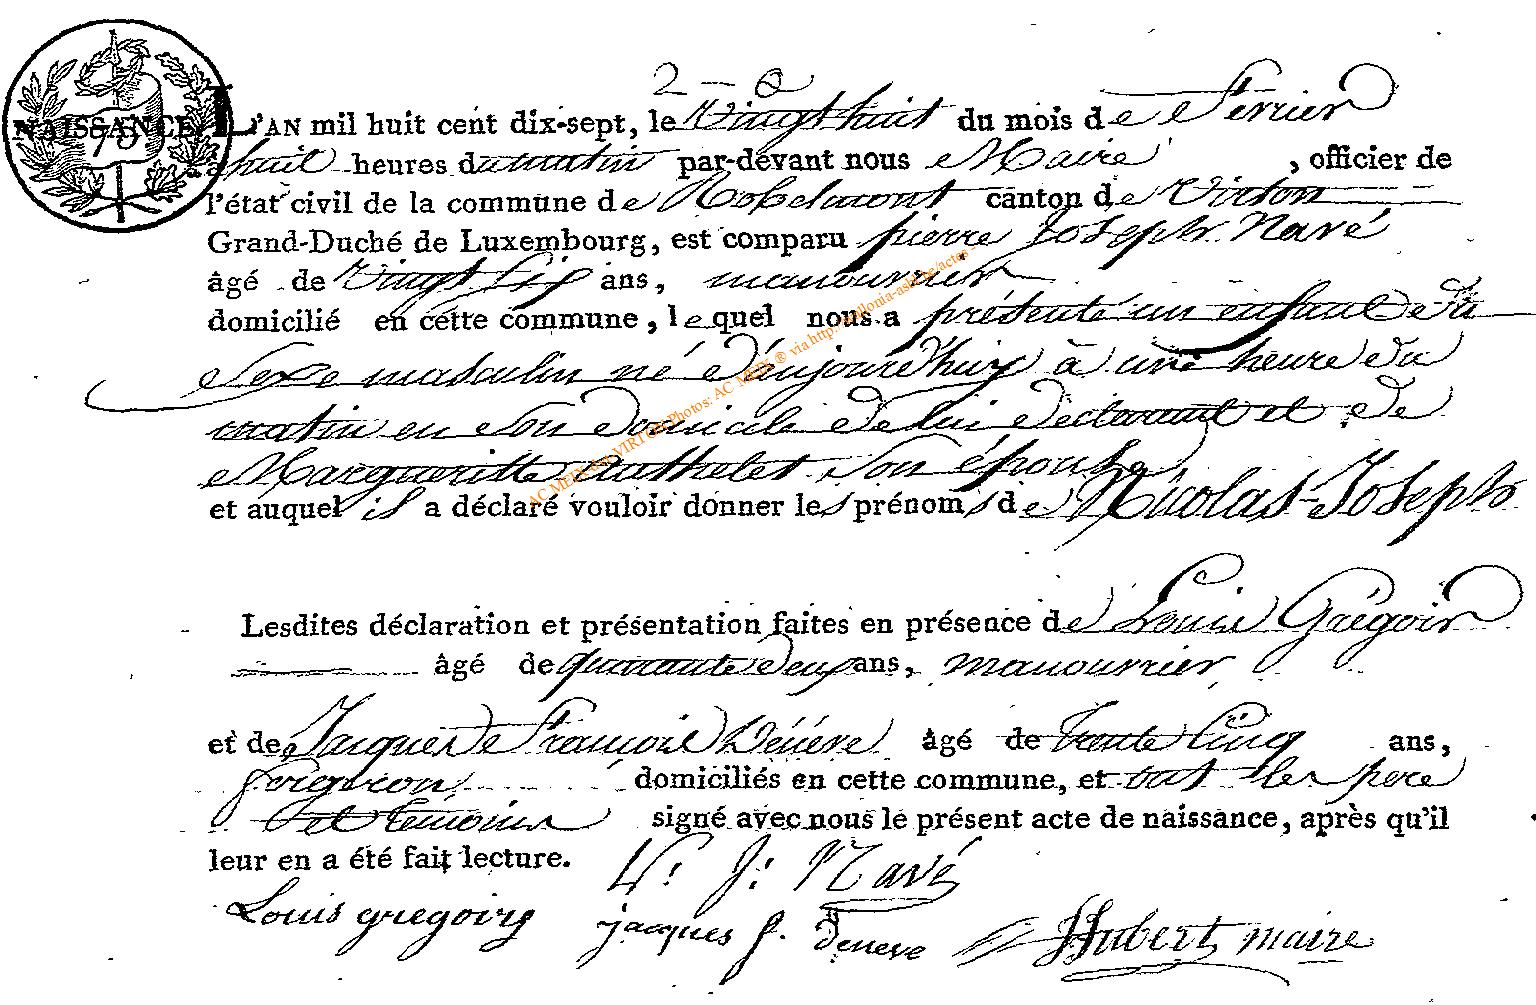 2 - 0
NAISSANCE. L'AN mil huit cent dix-sept, le Vingt huit du mois de fevrier
75
à huit heures du matin par-devant nous Maire, officier de
l'état civil de la commune de Robelmont canton de Virton
Grand-Duché de Luxembourg, est comparu pierre Joseph Navé
âgé de Vingt six ans, manouvrier
domicilié en cette commune, lequel nous a présenté un enfant du
Sexe masculin né d'aujourd'huy à une heure du
matin en son domicile de lui déclarant et de
Margueritte son épouse
et auquel il a déclaré vouloir donner les prénoms de Nicolas-Joseph
Lesdites déclaration et présentation faites en présence de Louis Grégoir
âgé de quarante deux ans, manouvrier
et de Jacques François Dénéve âgé de trente Cinq ans,
forgeron, domiciliés en cette commune, et ont les pere
et temoins signé avec nous le présent acte de naissance, après qu'il
leur en a été fait lecture.
P. J. Navé
Louis gregoire jacques f. deneve Hubert maire
AC MEIX-dvt-VIRTON Photos: AC MEIX ® via http://wallonia-asbl.be/actes -